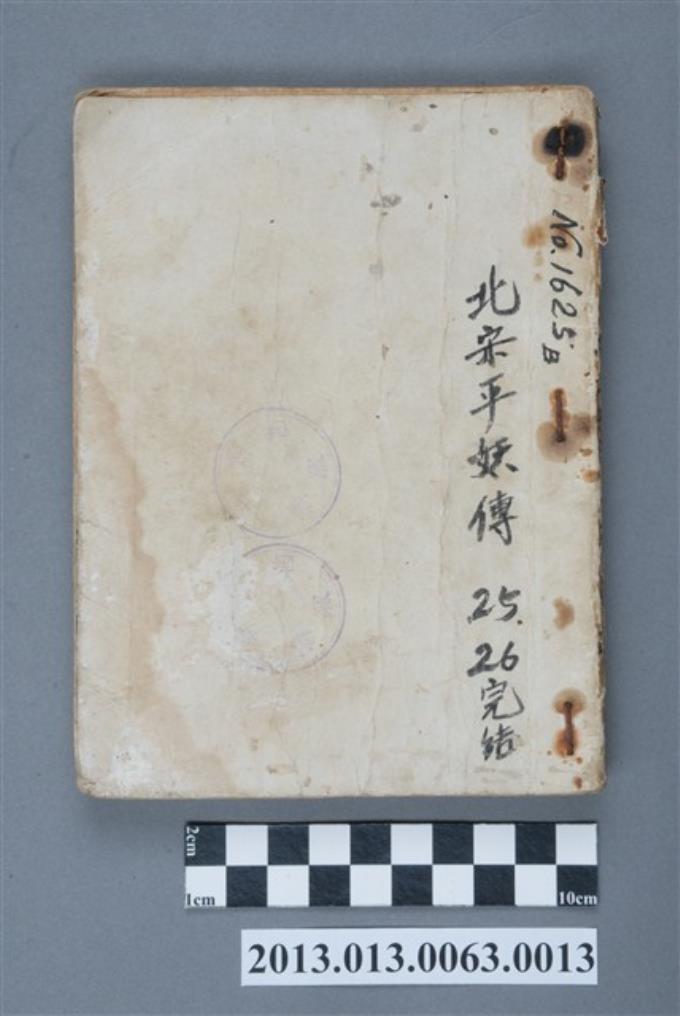 No.1625B
北宋平妖傳 25. 26完結
2cm
1cm 10cm
2013.013.0063.0013